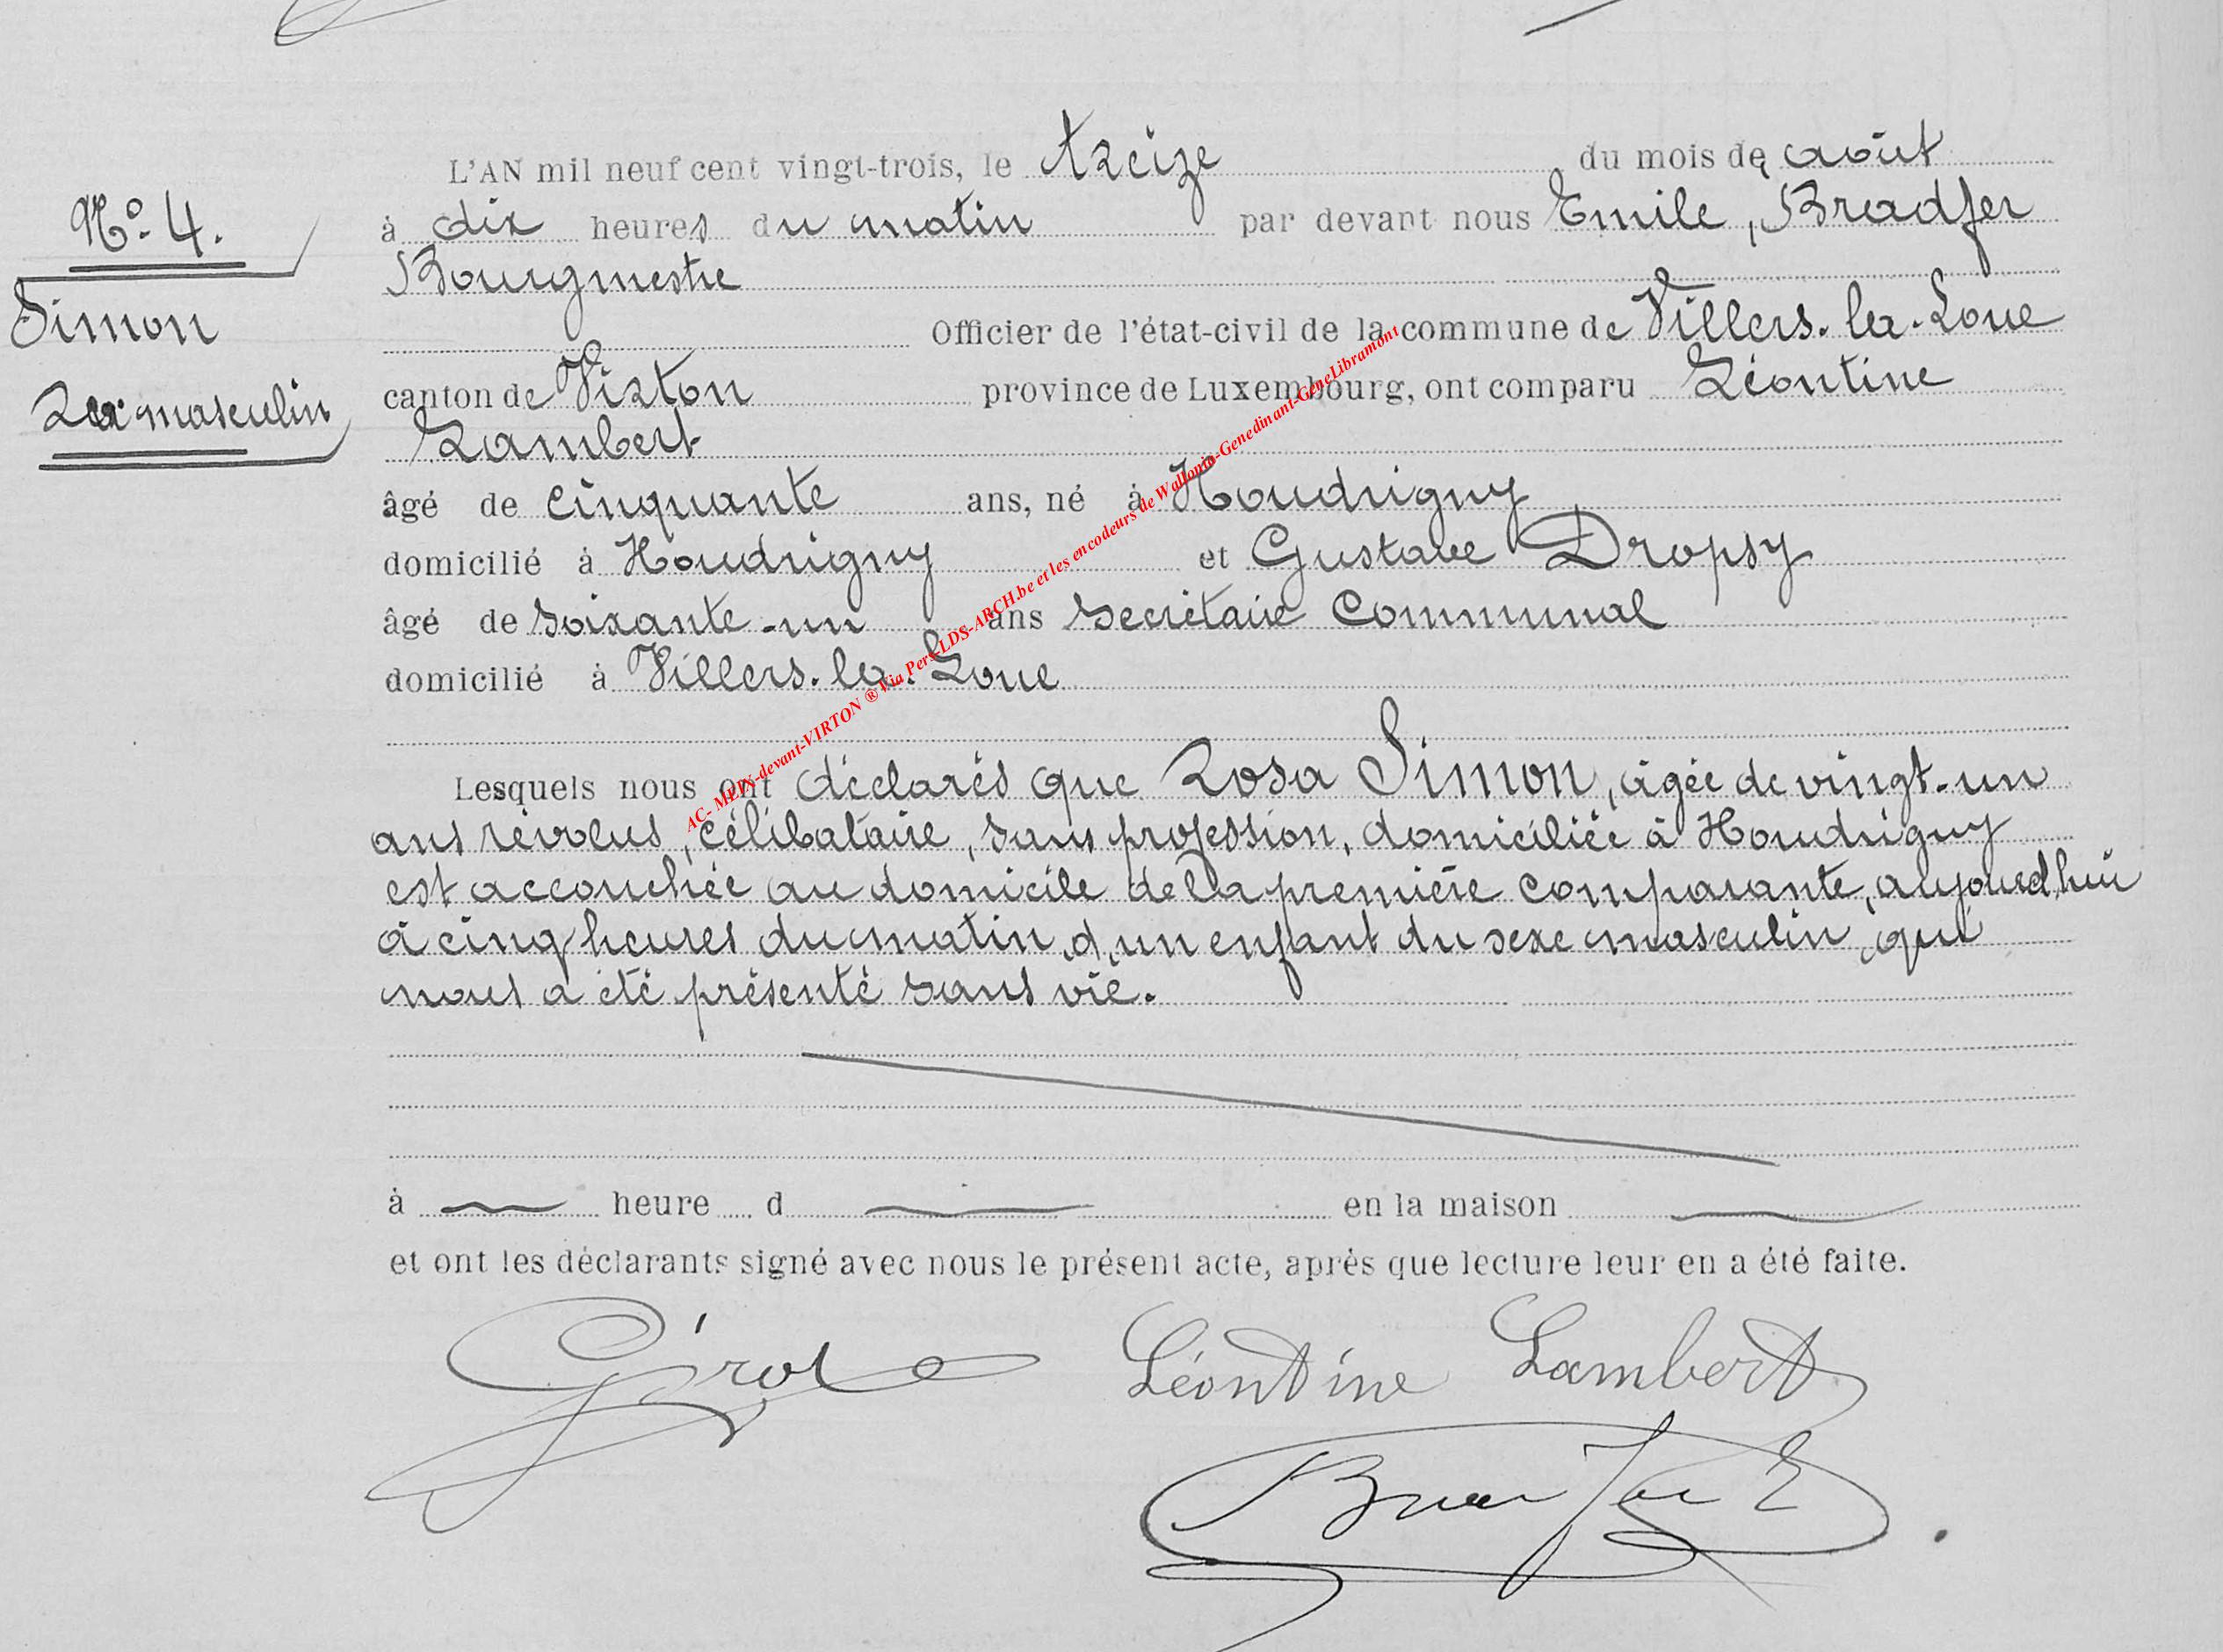 L'AN mil neuf cent vingt-trois, le treize du mois de août
N°. 4.
à dix heures du matin par devant nous Emile, Bradfer
Bourgmestre
Simon
Officier de l'état-civil de la commune de Villers-la-Loue
Sex masculin
canton de Virton province de Luxembourg, ont comparu Léontine
Lambert
âgé de cinquante ans, né à Houdrigny
domicilié à Houdrigny et Gustave Dropsy
âgé de soixante-un ans secrétaire Communal
domicilié à Villers-la-Loue
Lesquels nous ont déclarés que Rosa Simon, âgée de vingt-un
ans révolus, célibataire, sans profession, domiciliée à Houdrigny
est accouchée au domicile de la première comparante, aujourd'hui
à cinq heures du matin, d'un enfant du sexe masculin, qui
nous a été présenté sans vie.
à heure d en la maison
et ont les déclarants signé avec nous le présent acte, après que lecture leur en a été faite.
Léontine Lambert
AC- MEIX-devant-VIRTON ® Via Pers-LDS-ARCH.be et les encodeurs de Wallonia-Genedinant-GeneLibramont